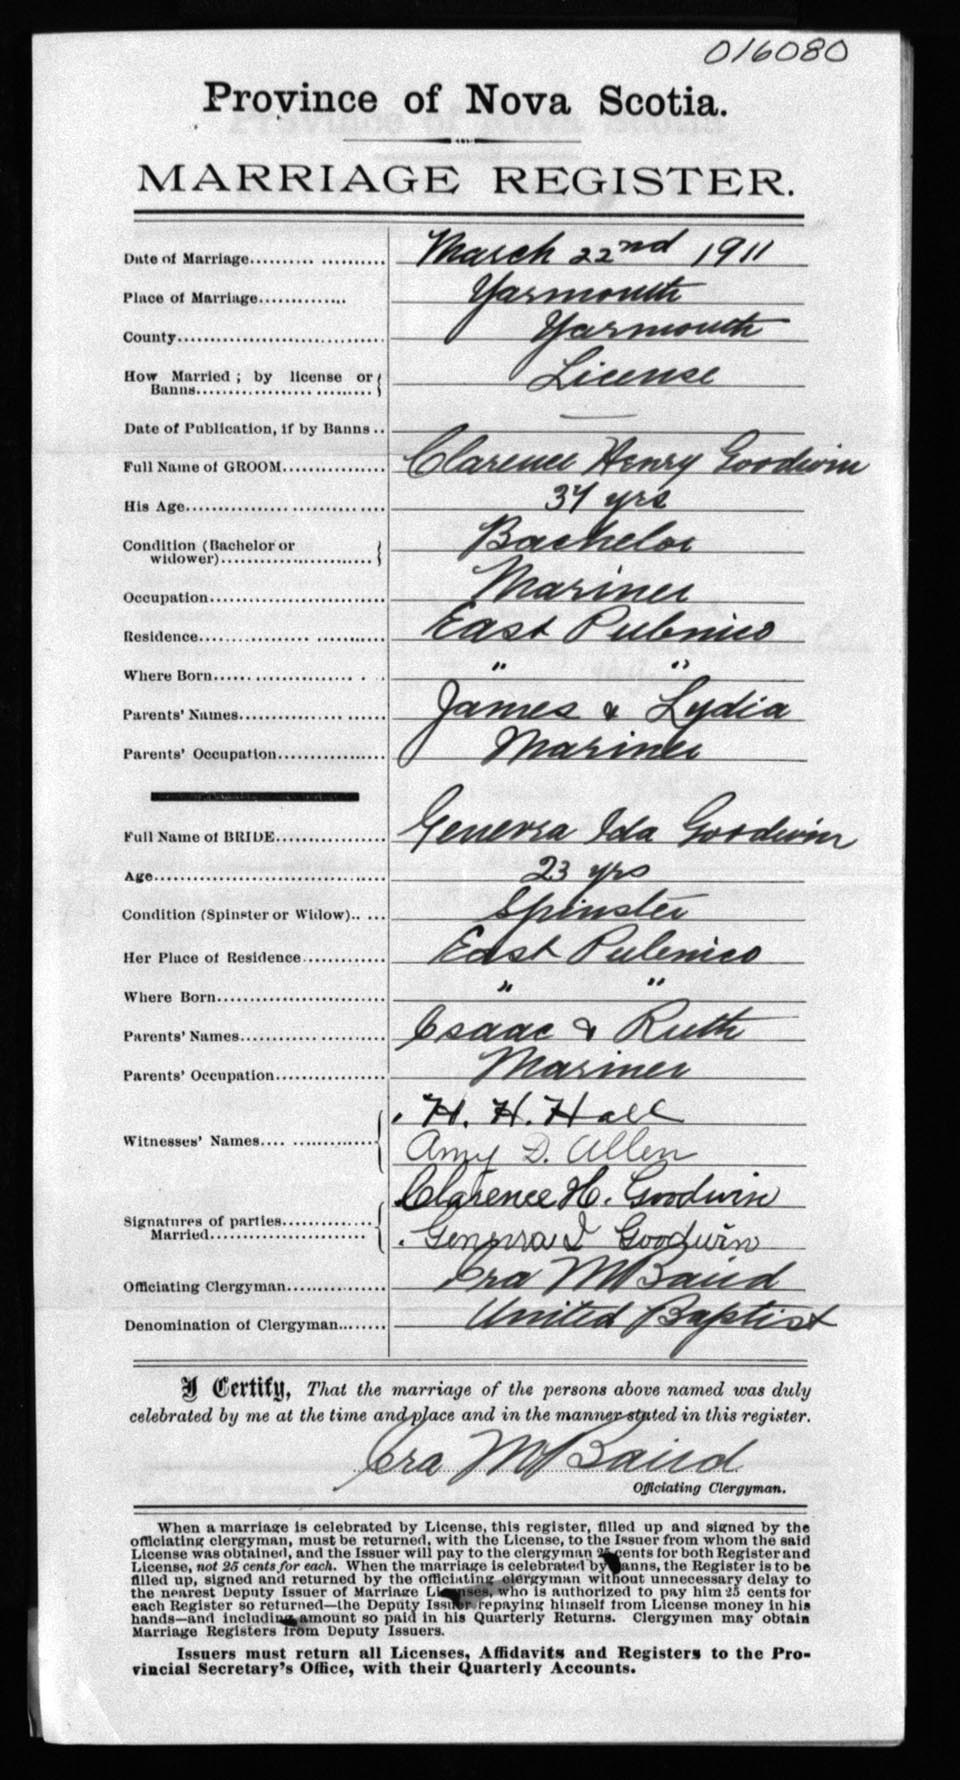 016080
Province of Nova Scotia.
MARRIAGE REGISTER.
Date of Marriage.......... ........... March 22nd 1911
Place of Marriage.............. Yarmouth
County................................. Yarmouth
How Married ; by license or
Banns.................... ......... License
Date of Publication, if by Banns .. —
Full Name of GROOM................ Clarence Henry Goodwin
His Age...................... ......... .... 37 yrs
Condition (Bachelor or
widower)........................ Bachelor
Occupation............................. Mariner
Residence................. ............ East Pubnico
Where Born...................... . .. " "
Parents' Names................ ...... James & Lydia
Parents' Occupation................. Mariner
Full Name of BRIDE................. Genevra Ida Goodwin
Age..................................... 23 yrs
Condition (Spinster or Widow).. ... Spinster
Her Place of Residence............. East Pubnico
Where Born............................ " "
Parents' Names............ .......... Isaac & Ruth
Parents' Occupation................. Mariner
Witnesses' Names.... .............. H. H. Hall
Amy D. Allen
Signatures of parties............... Clarence H. Goodwin
Married.......................... Genevra I Goodwin
Officiating Clergyman............... Ira M Baird
Denomination of Clergyman........ United Baptist
I Certify, That the marriage of the persons above named was duly
celebrated by me at the time and place and in the manner stated in this register.
Ira M Baird
Officiating Clergyman.
When a marriage is celebrated by License, this register, filled up and signed by the
officiating clergyman, must be returned, with the License, to the Issuer from whom the said
License was obtained, and the Issuer will pay to the clergyman 25 cents for both Register and
License, not 25 cents for each. When the marriage is celebrated by Banns, the Register is to be
filled up, signed and returned by the officiating clergyman without unnecessary delay to
the nearest Deputy Issuer of Marriage Licenses, who is authorized to pay him 25 cents for
each Register so returned—the Deputy Issuer repaying himself from License money in his
hands—and including amount so paid in his Quarterly Returns. Clergymen may obtain
Marriage Registers from Deputy Issuers.
Issuers must return all Licenses, Affidavits and Registers to the Pro-
vincial Secretary's Office, with their Quarterly Accounts.